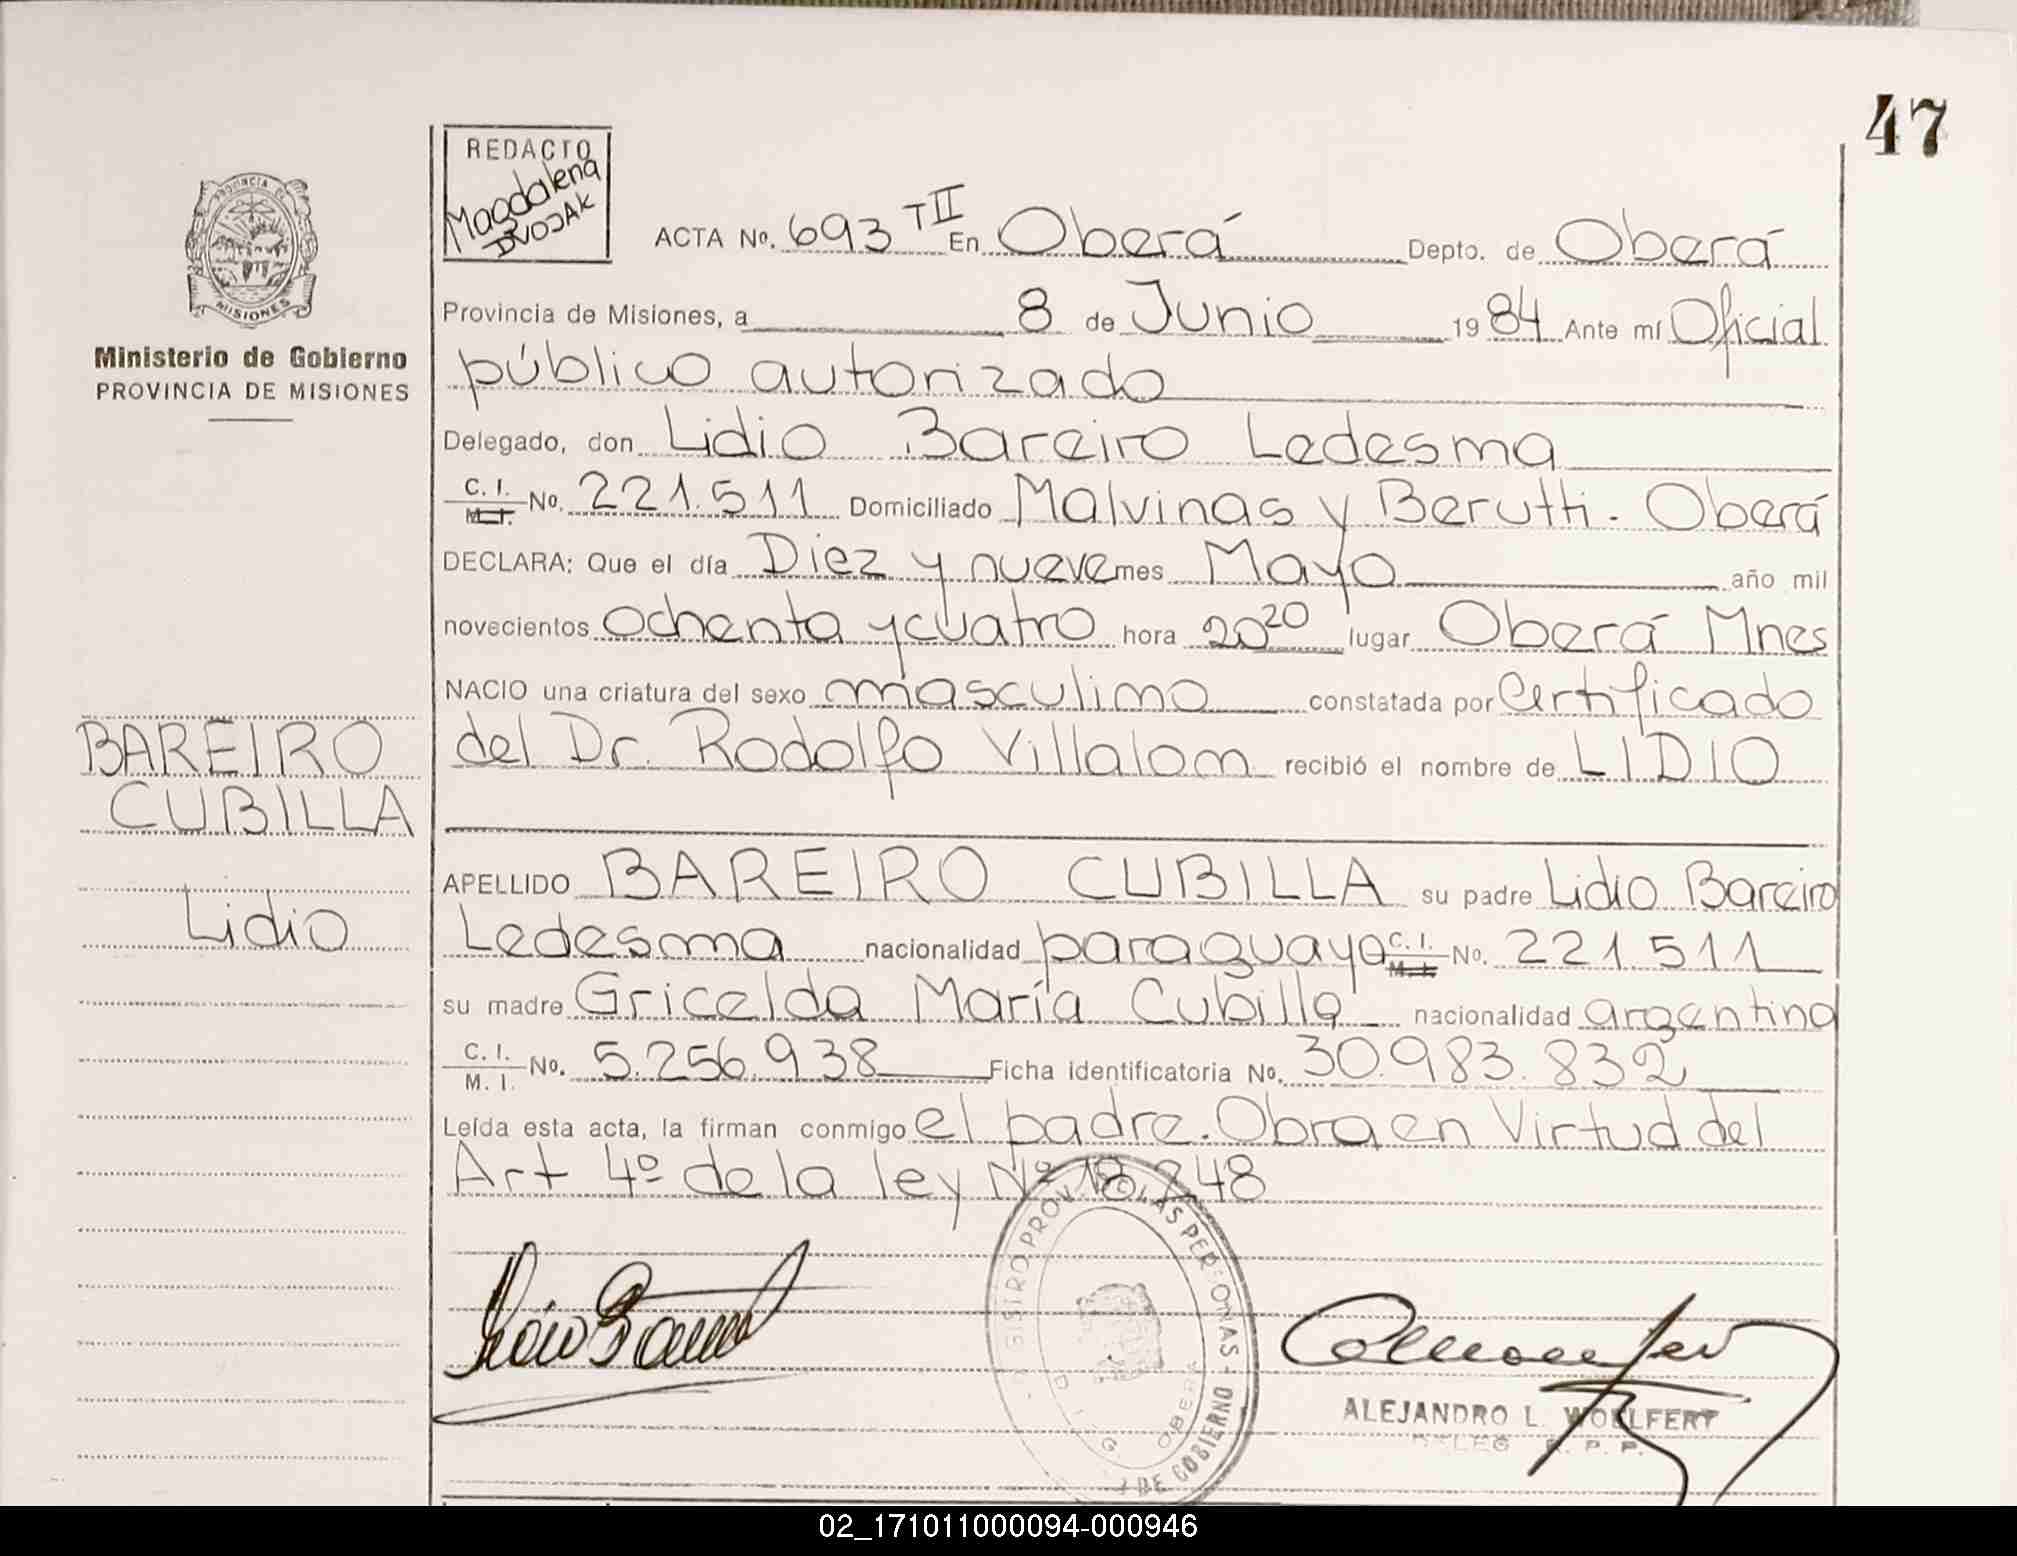 47
REDACTO
Magdalena
DVOJAK
ACTA No. 693 TII En Oberá Depto. de Oberá
Provincia de Misiones, a 8 de Junio 1984 Ante mí Oficial
público autorizado
Delegado, don Lidio Bareiro Ledesma
C. I. M. I. No. 221.511 Domiciliado Malvinas y Berutti. Oberá
DECLARA: Que el día Diez y nueve mes Mayo año mil
novecientos ochenta y cuatro hora 20 20 lugar Oberá Mnes
NACIO una criatura del sexo masculino constatada por Certificado
del Dr. Rodolfo Villalom recibió el nombre de LIDIO
APELLIDO BAREIRO CUBILLA su padre Lidio Bareiro
Ledesma nacionalidad paraguaya C. I. M. I. No. 221.511
su madre Gricelda María Cubilla nacionalidad argentina
C. I. M. I. No. 5.256.938 Ficha identificatoria No. 30.983.832
Leída esta acta, la firman conmigo el padre. Obra en Virtud del
Art 4º de la ley Nº 18.248
PROVINCIA DE
MISIONES
Ministerio de Gobierno
PROVINCIA DE MISIONES
BAREIRO
CUBILLA
Lidio
REGISTRO PROV. DE LAS PERSONAS
OBERA
DE GOBIERNO
ALEJANDRO L. WOELFERT
R. P. P.
02_171011000094-000946